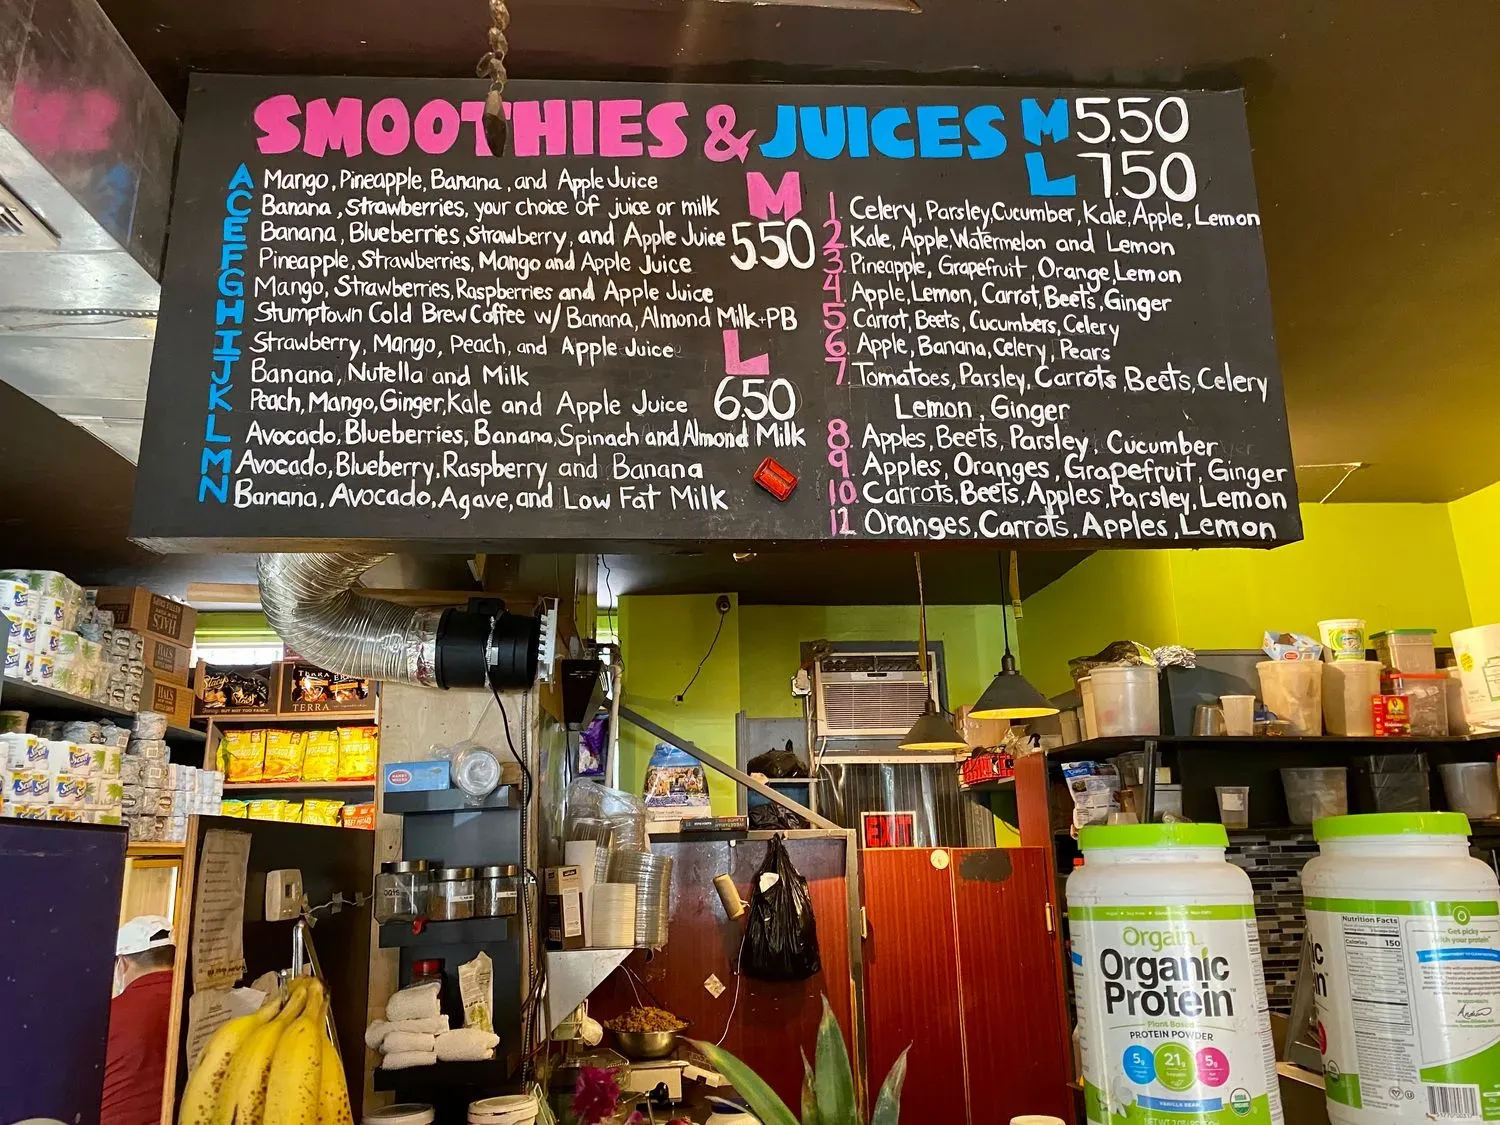 SMOOTHIES & JUICES M 5.50
L 7.50
A Mango, Pineapple, Banana, and Apple Juice
C Banana, Strawberries, your choice of juice or milk
E Banana, Blueberries, Strawberry, and Apple Juice
F Pineapple, Strawberries, Mango and Apple Juice
G Mango, Strawberries, Raspberries and Apple Juice
H Stumptown Cold Brew Coffee w/ Banana, Almond Milk+PB
I Strawberry, Mango, Peach, and Apple Juice
J Banana, Nutella and Milk
K Peach, Mango, Ginger, Kale and Apple Juice
L Avocado, Blueberries, Banana, Spinach and Almond Milk
M Avocado, Blueberry, Raspberry and Banana
N Banana, Avocado, Agave, and Low Fat Milk
M
5.50
L
6.50
1. Celery, Parsley, Cucumber, Kale, Apple, Lemon
2. Kale, Apple, Watermelon and Lemon
3. Pineapple, Grapefruit, Orange, Lemon
4. Apple, Lemon, Carrot, Beets, Ginger
5. Carrot, Beets, Cucumbers, Celery
6. Apple, Banana, Celery, Pears
7. Tomatoes, Parsley, Carrots, Beets, Celery
Lemon, Ginger
8. Apples, Beets, Parsley, Cucumber
9. Apples, Oranges, Grapefruit, Ginger
10. Carrots, Beets, Apples, Parsley, Lemon
12. Oranges, Carrots, Apples, Lemon
Stacy's
TERRA
TERRA
EXIT
oats
Orgain
Organic
Protein
Plant Based
PROTEIN POWDER
5g
21g
5g
VANILLA BEAN
USDA
ORGANIC
Nutrition Facts
Calories 150
Get picky
with your protein